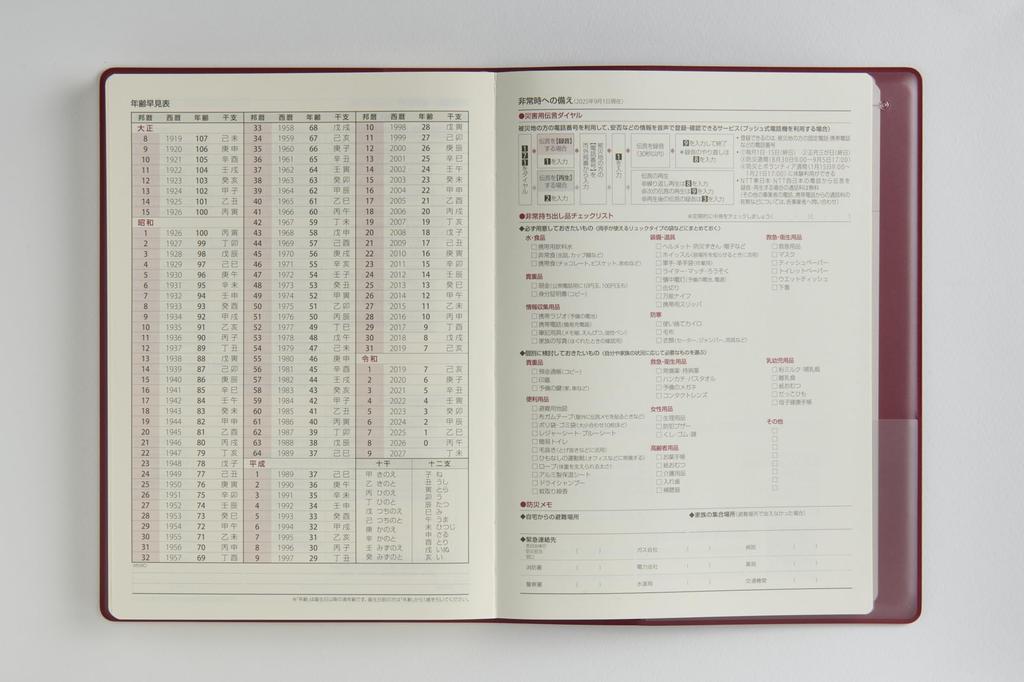 年齢早見表
邦暦 西暦 年齢 干支
大正
8 1919 107 己未
9 1920 106 庚申
10 1921 105 辛酉
11 1922 104 壬戌
12 1923 103 癸亥
13 1924 102 甲子
14 1925 101 乙丑
15 1926 100 丙寅
昭和
1 1926 100 丙寅
2 1927 99 丁卯
3 1928 98 戊辰
4 1929 97 己巳
5 1930 96 庚午
6 1931 95 辛未
7 1932 94 壬申
8 1933 93 癸酉
9 1934 92 甲戌
10 1935 91 乙亥
11 1936 90 丙子
12 1937 89 丁丑
13 1938 88 戊寅
14 1939 87 己卯
15 1940 86 庚辰
16 1941 85 辛巳
17 1942 84 壬午
18 1943 83 癸未
19 1944 82 甲申
20 1945 81 乙酉
21 1946 80 丙戌
22 1947 79 丁亥
23 1948 78 戊子
24 1949 77 己丑
25 1950 76 庚寅
26 1951 75 辛卯
27 1952 74 壬辰
28 1953 73 癸巳
29 1954 72 甲午
30 1955 71 乙未
31 1956 70 丙申
32 1957 69 丁酉
邦暦 西暦 年齢 干支
33 1958 68 戊戌
34 1959 67 己亥
35 1960 66 庚子
36 1961 65 辛丑
37 1962 64 壬寅
38 1963 63 癸卯
39 1964 62 甲辰
40 1965 61 乙巳
41 1966 60 丙午
42 1967 59 丁未
43 1968 58 戊申
44 1969 57 己酉
45 1970 56 庚戌
46 1971 55 辛亥
47 1972 54 壬子
48 1973 53 癸丑
49 1974 52 甲寅
50 1975 51 乙卯
51 1976 50 丙辰
52 1977 49 丁巳
53 1978 48 戊午
54 1979 47 己未
55 1980 46 庚申
56 1981 45 辛酉
57 1982 44 壬戌
58 1983 43 癸亥
59 1984 42 甲子
60 1985 41 乙丑
61 1986 40 丙寅
62 1987 39 丁卯
63 1988 38 戊辰
64 1989 37 己巳
平成
1 1989 37 己巳
2 1990 36 庚午
3 1991 35 辛未
4 1992 34 壬申
5 1993 33 癸酉
6 1994 32 甲戌
7 1995 31 乙亥
8 1996 30 丙子
9 1997 29 丁丑
邦暦 西暦 年齢 干支
10 1998 28 戊寅
11 1999 27 己卯
12 2000 26 庚辰
13 2001 25 辛巳
14 2002 24 壬午
15 2003 23 癸未
16 2004 22 甲申
17 2005 21 乙酉
18 2006 20 丙戌
19 2007 19 丁亥
20 2008 18 戊子
21 2009 17 己丑
22 2010 16 庚寅
23 2011 15 辛卯
24 2012 14 壬辰
25 2013 13 癸巳
26 2014 12 甲午
27 2015 11 乙未
28 2016 10 丙申
29 2017 9 丁酉
30 2018 8 戊戌
31 2019 7 己亥
令和
1 2019 7 己亥
2 2020 6 庚子
3 2021 5 辛丑
4 2022 4 壬寅
5 2023 3 癸卯
6 2024 2 甲辰
7 2025 1 乙巳
8 2026 0 丙午
9 2027 丁未
十干 十二支
甲 きのえ
乙 きのと
丙 ひのえ
丁 ひのと
戊 つちのえ
己 つちのと
庚 かのえ
辛 かのと
壬 みずのえ
癸 みずのと
子 ね
丑 うし
寅 とら
卯 う
辰 たつ
巳 み
午 うま
未 ひつじ
申 さる
酉 とり
戌 いぬ
亥 い
MEMO
※「年齢」は誕生日以降の満年齢です。誕生日前の方は「年齢」から1歳を引いてください。
非常時への備え(2025年9月1日現在)
●災害用伝言ダイヤル
被災地の方の電話番号を利用して、安否などの情報を音声で登録・確認できるサービス(プッシュ式電話機を利用する場合)
171をダイヤル
伝言を【録音】
する場合
1を入力
伝言を【再生】
する場合
2を入力
被災地の方の
【電話番号】を
市外局番から入力
1を入力
伝言を録音
(30秒以内)
9を入力して終了
*録音のやり直しは
8を入力
伝言の再生
*繰り返し再生は8を入力
*次の伝言の再生は9を入力
*再生後の伝言の録音は3を入力
・登録できるのは、被災地の方の固定電話・携帯電話
などの電話番号
・①毎月1日・15日(終日) ②正月三が日(終日)
③防災週間(8月30日9:00〜9月5日17:00)
④防災とボランティア週間(1月15日9:00〜
1月21日17:00)に体験利用ができる
・NTT東日本・NTT西日本の電話から伝言を
録音・再生する場合の通話料は無料
(その他の事業者の電話、携帯電話からの通話料の
有無などについては、各事業者へ問い合わせ)
●非常持ち出し品チェックリスト
※定期的に中身をチェックしましょう( ・ )( ・ )
◆必ず用意しておきたいもの(両手が使えるリュックタイプの袋などにまとめておく)
水・食品
□携帯用飲料水
□非常食(缶詰、カップ麺など)
□携帯食(チョコレート、ビスケット、あめなど)
貴重品
□現金(公衆電話用に10円玉、100円玉も)
□身分証明書(コピー)
情報収集用品
□携帯ラジオ(予備の電池)
□携帯電話(簡易充電器)
□筆記用具(メモ帳、えんぴつ、油性ペン)
□家族の写真(はぐれたときの確認用)
装備・道具
□ヘルメット・防災ずきん・帽子など
□ホイッスル(居場所を知らせるときに活用)
□軍手・革手袋(作業用)
□ライター・マッチ・ろうそく
□懐中電灯(予備の電池、電球)
□缶切り
□万能ナイフ
□携帯用スリッパ
防寒
□使い捨てカイロ
□毛布
□衣類(セーター、ジャンパー、雨具など)
救急・衛生用品
□救急用品
□マスク
□ティッシュペーパー
□トイレットペーパー
□ウエットティッシュ
□下着
◆個別に検討しておきたいもの(自分や家族の状況に応じて必要なものを選ぶ)
貴重品
□預金通帳(コピー)
□印鑑
□予備の鍵(家、車など)
便利用品
□避難用地図
□布ガムテープ(屋外に伝言メモを貼るときなど)
□ポリ袋・ゴミ袋(大小合わせ10枚ほど)
□レジャーシート・ブルーシート
□簡易トイレ
□毛抜き(とげ抜きなどに活用)
□ひもなしの運動靴(オフィスなどに常備する)
□ロープ(体重を支えられる太さ)
□アルミ製保温シート
□ドライシャンプー
□蚊取り線香
救急・衛生用品
□常備薬・持病薬
□ハンカチ・バスタオル
□予備のメガネ
□コンタクトレンズ
女性用品
□生理用品
□防犯ブザー
□くし・ゴム・鏡
高齢者用品
□お薬手帳
□紙おむつ
□介護用品
□入れ歯
□補聴器
乳幼児用品
□粉ミルク・哺乳瓶
□離乳食
□紙おむつ
□だっこひも
□母子健康手帳
その他
□
□
□
□
□
□
□
□
●防災メモ
◆自宅からの避難場所
◆家族の集合場所(避難場所で会えなかった場合)
◆緊急連絡先
ガス会社 ( )
病院 ( )
消防署 ( )
電力会社 ( )
薬局 ( )
警察署 ( )
水道局 ( )
交通機関 ( )